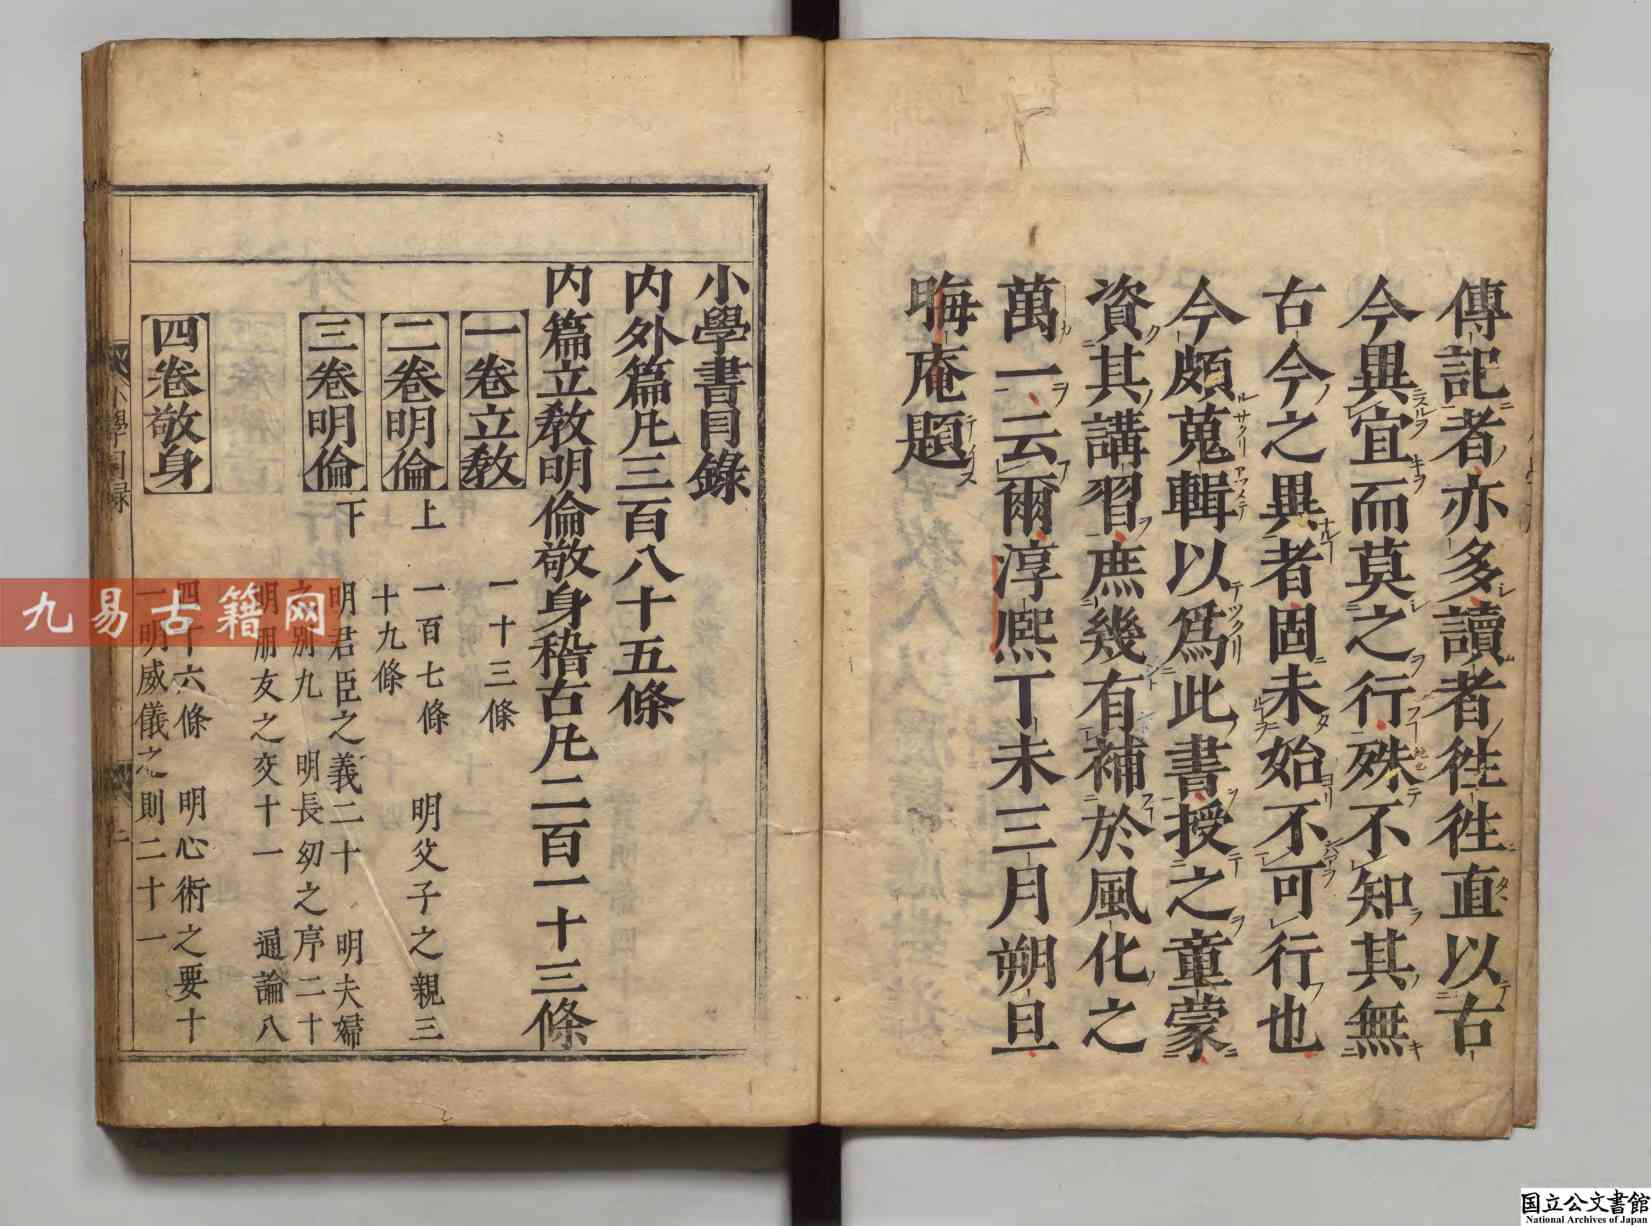 傳記者亦多讀者徃徃直以古
今異宜而莫之行殊不知其無
古今之異者固未始不可行也
今頗蒐輯以爲此書授之童蒙
資其講習庶幾有補於風化之
萬一云爾淳熙丁未三月朔旦
晦庵題
小學書目錄
内外篇凡三百八十五條
内篇立敎明倫敬身稽古凡二百一十三條
一卷立敎 一十三條
二卷明倫上 一百七條 明父子之親三
十九條
三卷明倫下 明君臣之義二十 明夫婦
之別九 明長幼之序二十
明朋友之交十一 通論八
四卷敬身 四十六條 明心術之要十
一明威儀之則二十一
小學目録
九易古籍网
国立公文書館
National Archives of Japan